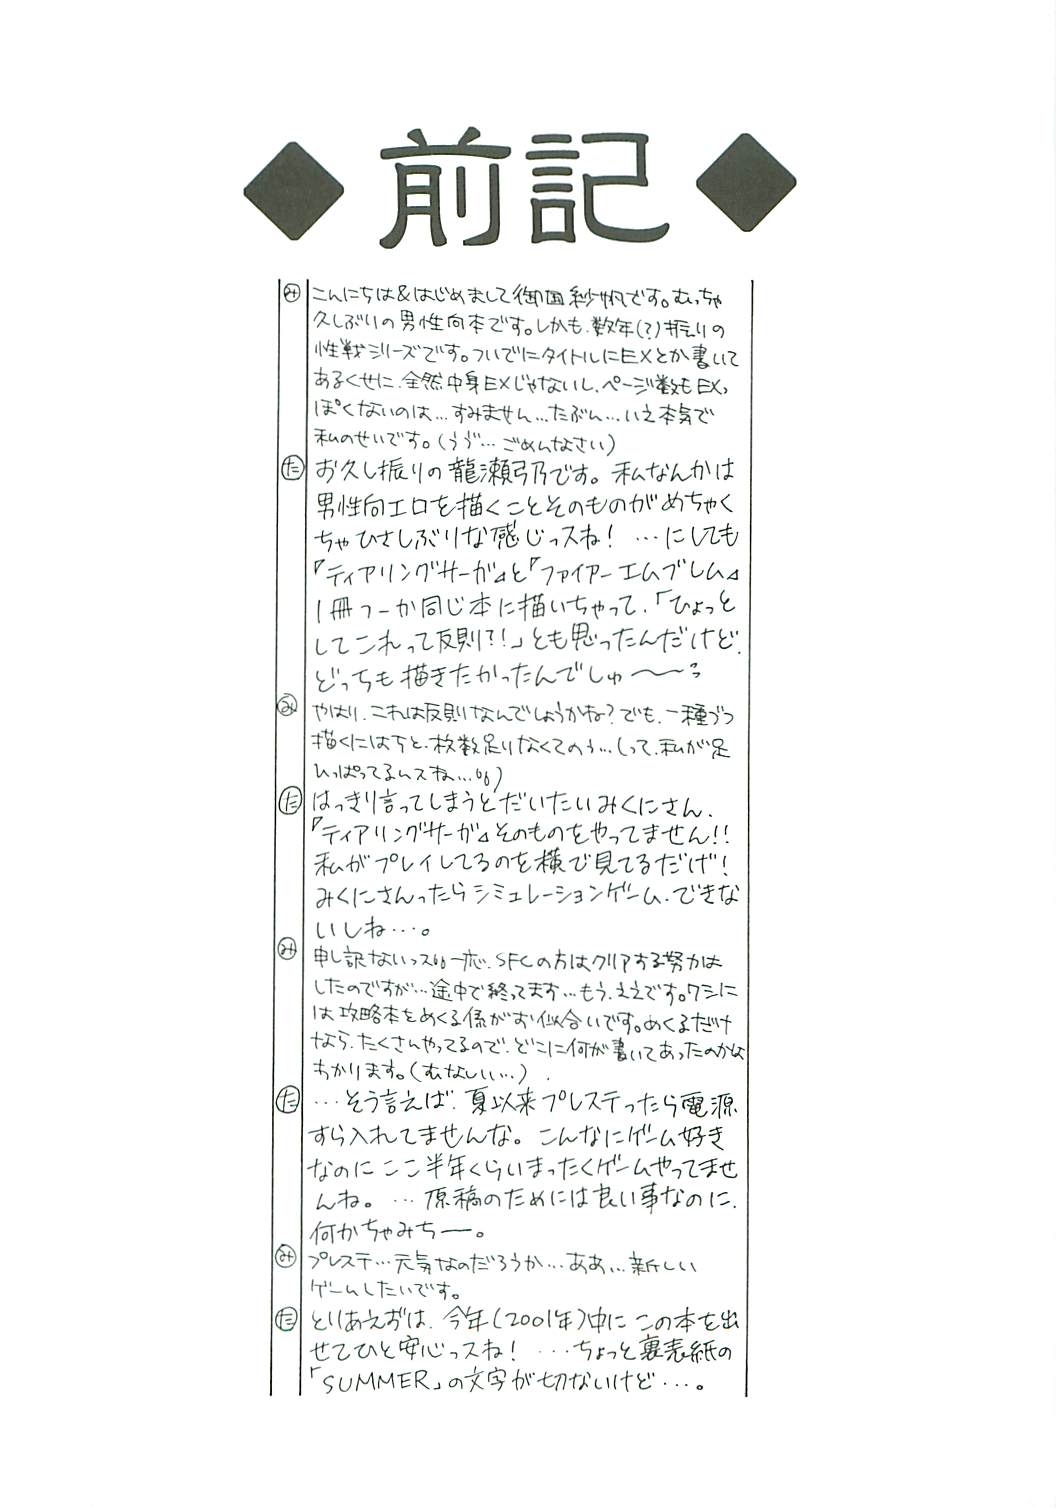 前記
み こんにちは&はじめまして御国紗帆です。むっちゃ
久しぶりの男性向本です。しかも、数年(?)振りの
性戦シリーズです。ついでにタイトルにEXとか書いて
あるくせに、全然中身EXじゃないし、ページ数もEXっ
ぽくないのは…すみません…たぶん…いえ本気で
私のせいです。(うう゛…ごめんなさい)
た お久し振りの龍瀬弓乃です。私なんかは
男性向エロを描くことそのものがめちゃく
ちゃひさしぶりな感じっスね! …にしても
『ティアリングサーガ』と『ファイアーエムブレム』
1冊つーか同じ本に描いちゃって、「ひょっと
してこれって反則?!」とも思ったんだけど、
どっちも描きたかったんでしゅ〜〜
み やはり、これは反則なんでしょうかね?でも、一種づつ
描くにはちと、枚数足りなくてのう…(って、私が足
ひっぱってるんスね…)
た はっきり言ってしまうとだいたいみくにさん、
『ティアリングサーガ』そのものをやってません!!
私がプレイしてるのを横で見てるだけ!
みくにさんったらシミュレーションゲーム、できな
いしね…。
み 申し訳ないっス 一応、SFCの方はクリアする努力は
したのですが…途中で終ってます…もう、ええです。ワシに
は攻略本をめくる係がお似合いです。めくるだけ
なら、たくさんやってるので、どこに何が書いてあったのかわ
かります。(むなしい…)
た …そう言えば、夏以来プレステったら電源
すら入れてませんな。こんなにゲーム好き
なのにここ半年くらいまったくゲームやってませ
んね。…原稿のためには良い事なのに、
何かちゃみちー。
み プレステ…元気なのだろうか…ああ…新しい
ゲームしたいです。
た とりあえずは、今年(2001年)中にこの本を出
せてひと安心っスね! …ちょっと裏表紙の
「SUMMER」の文字が切ないけど…。